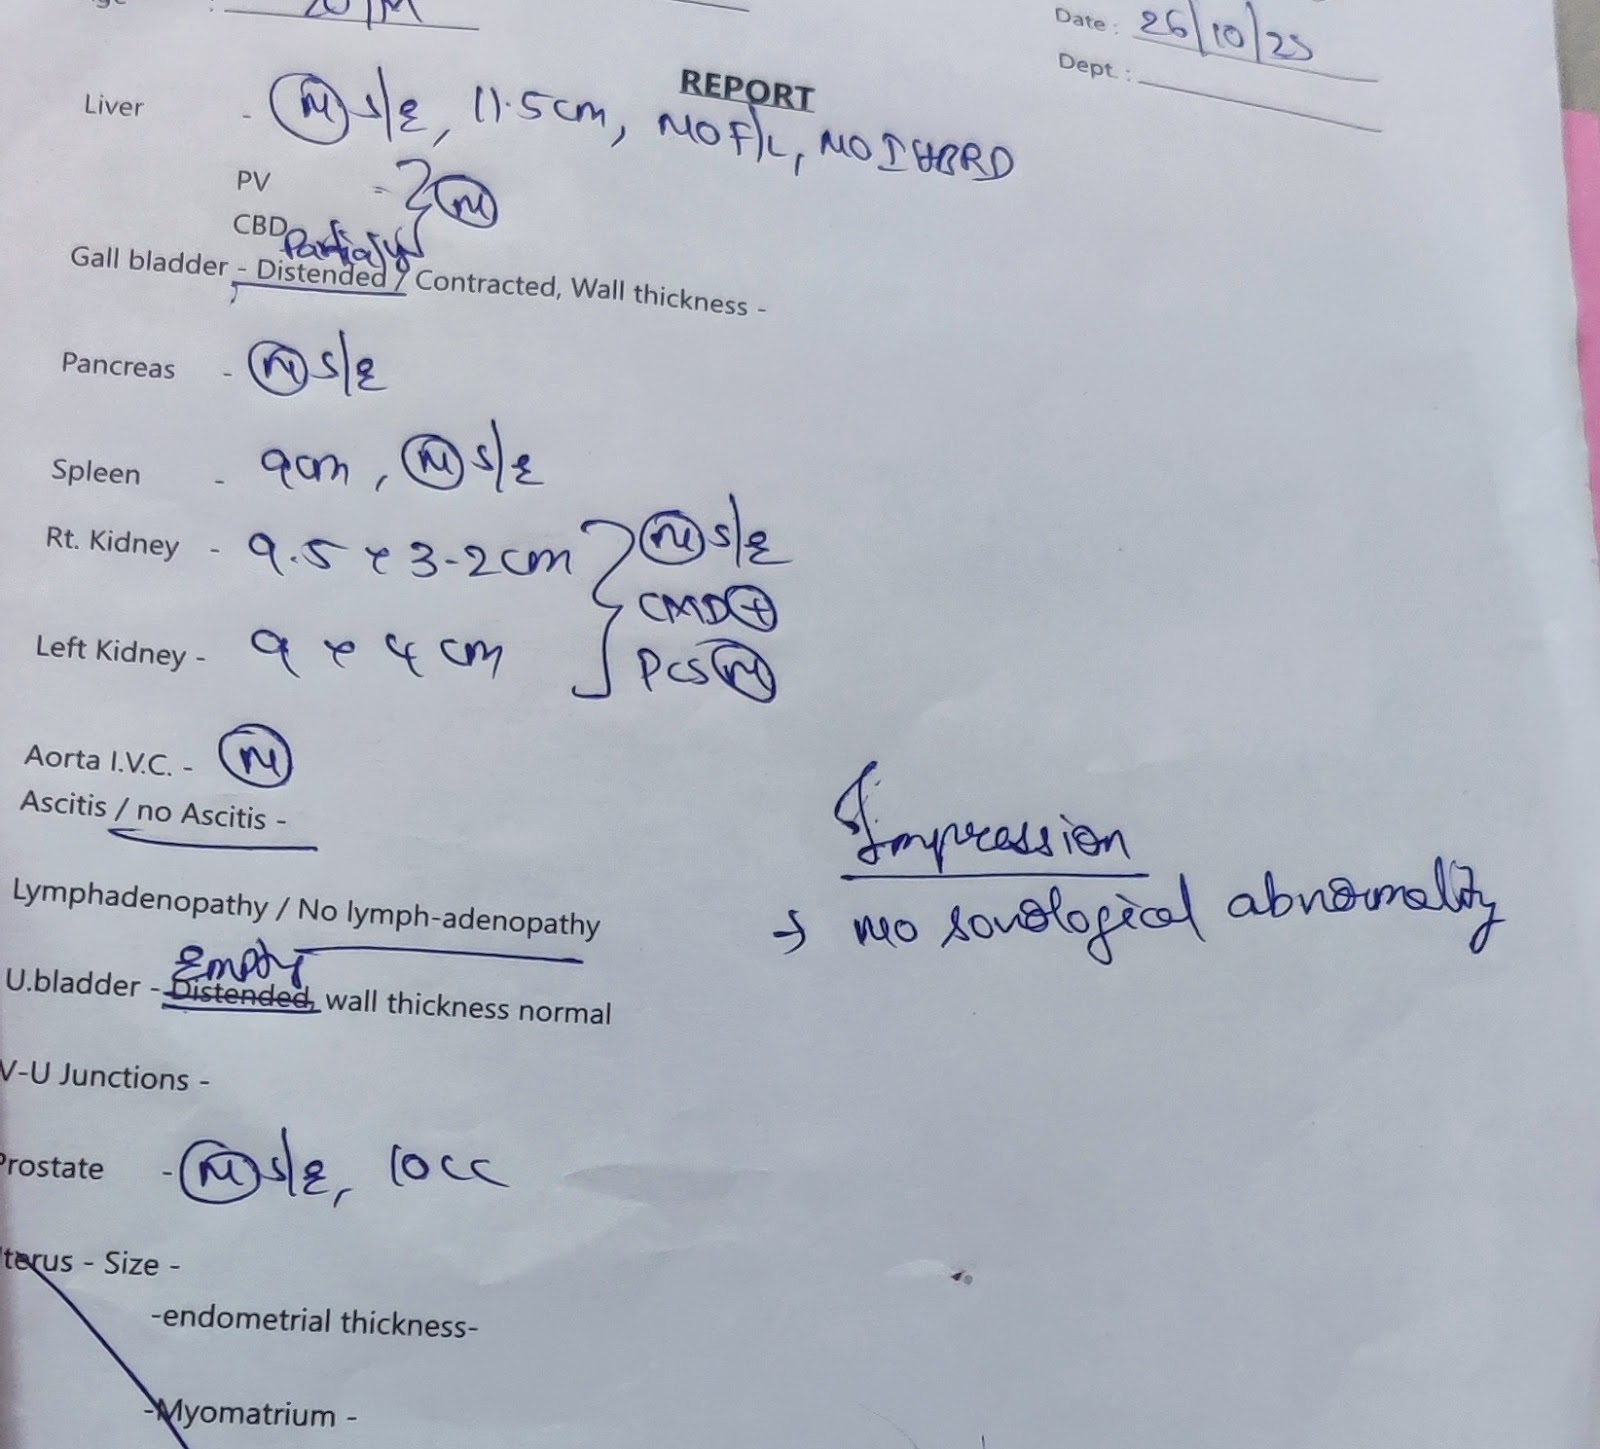 Date : 26/10/25
Dept. :
REPORT
Liver - (N) S/E, 11.5cm, NO F/L, NO IHBRD
PV - } (N)
CBD
Partially
Gall bladder - Distended / Contracted, Wall thickness -
Pancreas - (N) S/E
Spleen - 9cm, (N) S/E
Rt. Kidney - 9.5 x 3.2cm } (N) S/E
CMD (+)
Left Kidney - 9 x 4 cm PCS (N)
Aorta I.V.C. - (N)
Ascitis / no Ascitis -
Impression
Lymphadenopathy / No lymph-adenopathy
→ no sonological abnormality
Empty
U.bladder - Distended, wall thickness normal
V-U Junctions -
Prostate - (N) S/E, 10cc
terus - Size -
-endometrial thickness-
-Myomatrium -